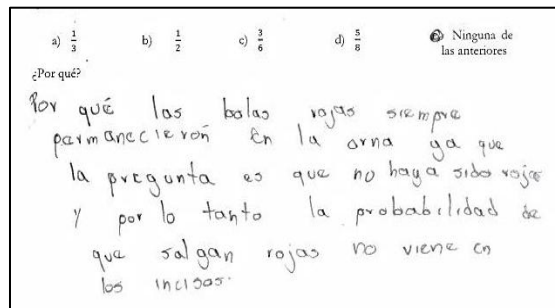 a) 1/3 b) 1/2 c) 3/6 d) 5/8 e) Ninguna de
las anteriores
¿Por qué?
Por qué las bolas rojas siempre
permanecierón en la orna ya que
la pregunta es que no haya sido rojas
y por lo tanto la probabilidad de
que salgan rojas no viene en
los incisos.